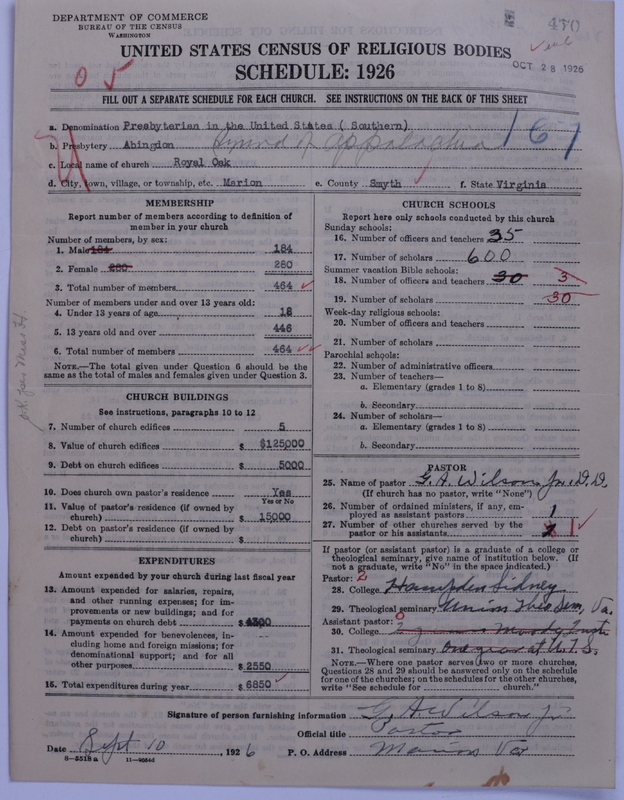 DEPARTMENT OF COMMERCE
BUREAU OF THE CENSUS
WASHINGTON
470
OCT 28 1926
UNITED STATES CENSUS OF RELIGIOUS BODIES
SCHEDULE: 1926
0 5
FILL OUT A SEPARATE SCHEDULE FOR EACH CHURCH. SEE INSTRUCTIONS ON THE BACK OF THIS SHEET
a. Denomination Presbyterian in the United States ( Southern)
b. Presbytery Abingdon Synod of Appalachia 167
c. Local name of church Royal Oak
d. City, town, village, or township, etc. Marion e. County Smyth f. State Virginia
MEMBERSHIP
Report number of members according to definition of
member in your church
Number of members, by sex:
1. Male 184 184
2. Female 280 280
3. Total number of members 464
Number of members under and over 13 years old:
4. Under 13 years of age 18
5. 13 years old and over 446
6. Total number of members 464
NOTE.—The total given under Question 6 should be
same as the total of males and females given under Question 3.
CHURCH BUILDINGS
See instructions, paragraphs 10 to 12
7. Number of church edifices 5
8. Value of church edifices $ $125000
9. Debt on church edifices $ 5000
10. Does church own pastor's residence Yes
Yes or No
11. Value of pastor's residence (if owned by
church) $ 15000
12. Debt on pastor's residence (if owned by
church) $
EXPENDITURES
Amount expended by your church during last fiscal year
13. Amount expended for salaries, repairs,
and other running expenses; for im-
provements or new buildings; and for
payments on church debt $ 4300
14. Amount expended for benevolences, in-
cluding home and foreign missions; for
denominational support; and for all
other purposes $ 2550
15. Total expenditures during year $ 6850
CHURCH SCHOOLS
Report here only schools conducted by this church
Sunday schools:
16. Number of officers and teachers 35
17. Number of scholars 600
Summer vacation Bible schools:
18. Number of officers and teachers 30 3
19. Number of scholars 30
Week-day religious schools:
20. Number of officers and teachers
21. Number of scholars
Parochial schools:
22. Number of administrative officers
23. Number of teachers—
a. Elementary (grades 1 to 8)
b. Secondary
24. Number of scholars—
a. Elementary (grades 1 to 8)
b. Secondary
PASTOR
25. Name of pastor G. A. Wilson Jr., D.D.
(If church has no pastor, write "None")
26. Number of ordained ministers, if any, em-
ployed as assistant pastors 1
27. Number of other churches served by the
pastor or his assistants 1
If pastor (or assistant pastor) is a graduate of a college or
theological seminary, give name of institution below. (If
not a graduate, write "No" in the space indicated.)
Pastor: 2
28. College Hampden Sidney
29. Theological seminary Union Theo Sem, Va.
Assistant pastor: 0
30. College Moody Inst
31. Theological seminary one year at U.T.S.
NOTE.—Where one pastor serves two or more churches,
Questions 28 and 29 should be answered only on the schedule
for one of the churches; on the schedules for the other churches,
write "See schedule for church."
Signature of person furnishing information G. A. Wilson Jr
Official title Pastor
Date Sept 10, 1926 P. O. Address Marion Va
8-5518 a